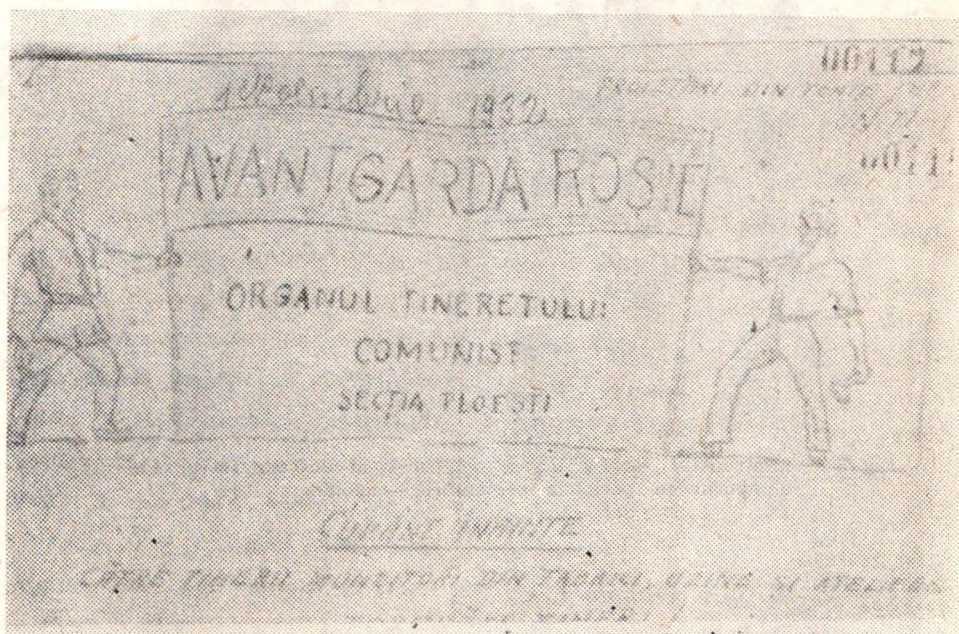 00112
1932 PROLETARI DIN
AVANTGARDA ROȘIE
ORGANUL TINERETULUI
COMUNIST
SECȚIA PLOEȘTI
CUVÂNT ÎNAINTE
CĂTRE TINERII MUNCITORI DIN FABRICI, UZINE ȘI ATELIERE